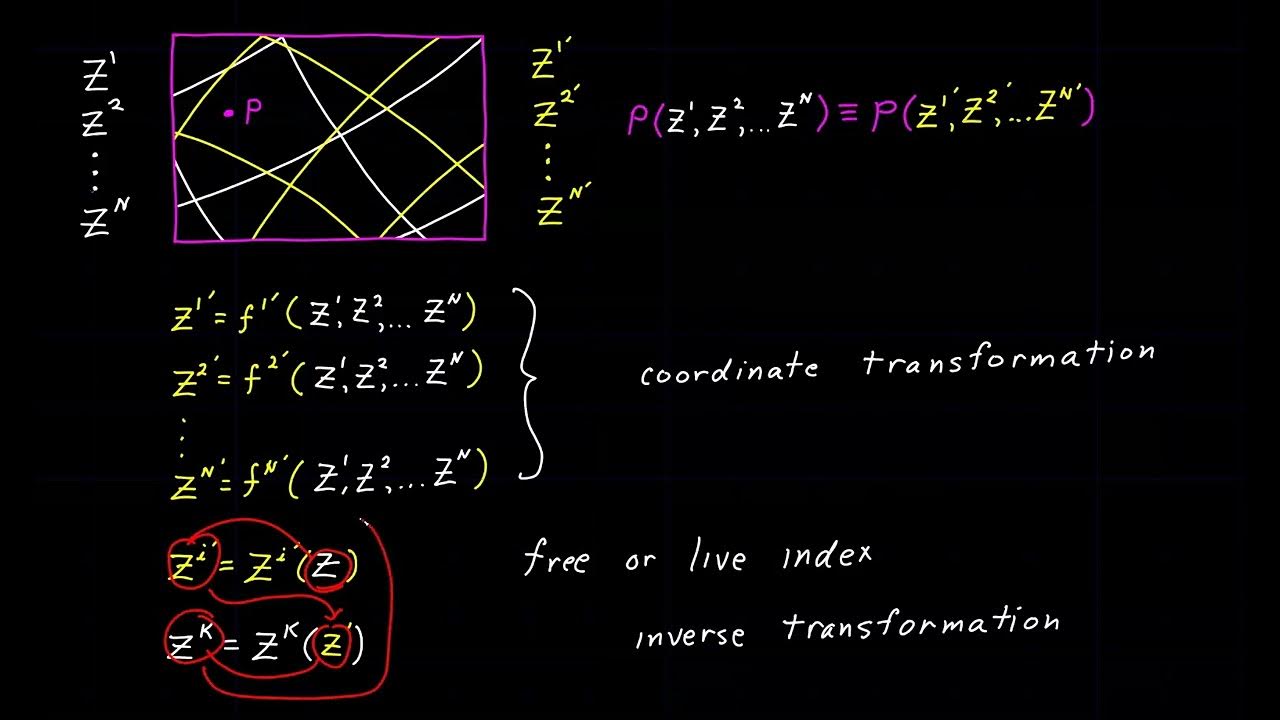 Z¹
Z²
⋮
Zᴺ
P
Z¹′
Z²′
⋮
Zᴺ′
P(Z¹, Z², ... Zᴺ) ≡ P(Z¹′, Z²′, ... Zᴺ′)
Z¹′ = f¹′(Z¹, Z², ... Zᴺ)
Z²′ = f²′(Z¹, Z², ... Zᴺ)
⋮
Zᴺ′ = fᴺ′(Z¹, Z², ... Zᴺ)
coordinate transformation
Zⁱ′ = Zⁱ′(Z) free or live index
Zᴷ = Zᴷ(Z′) inverse transformation